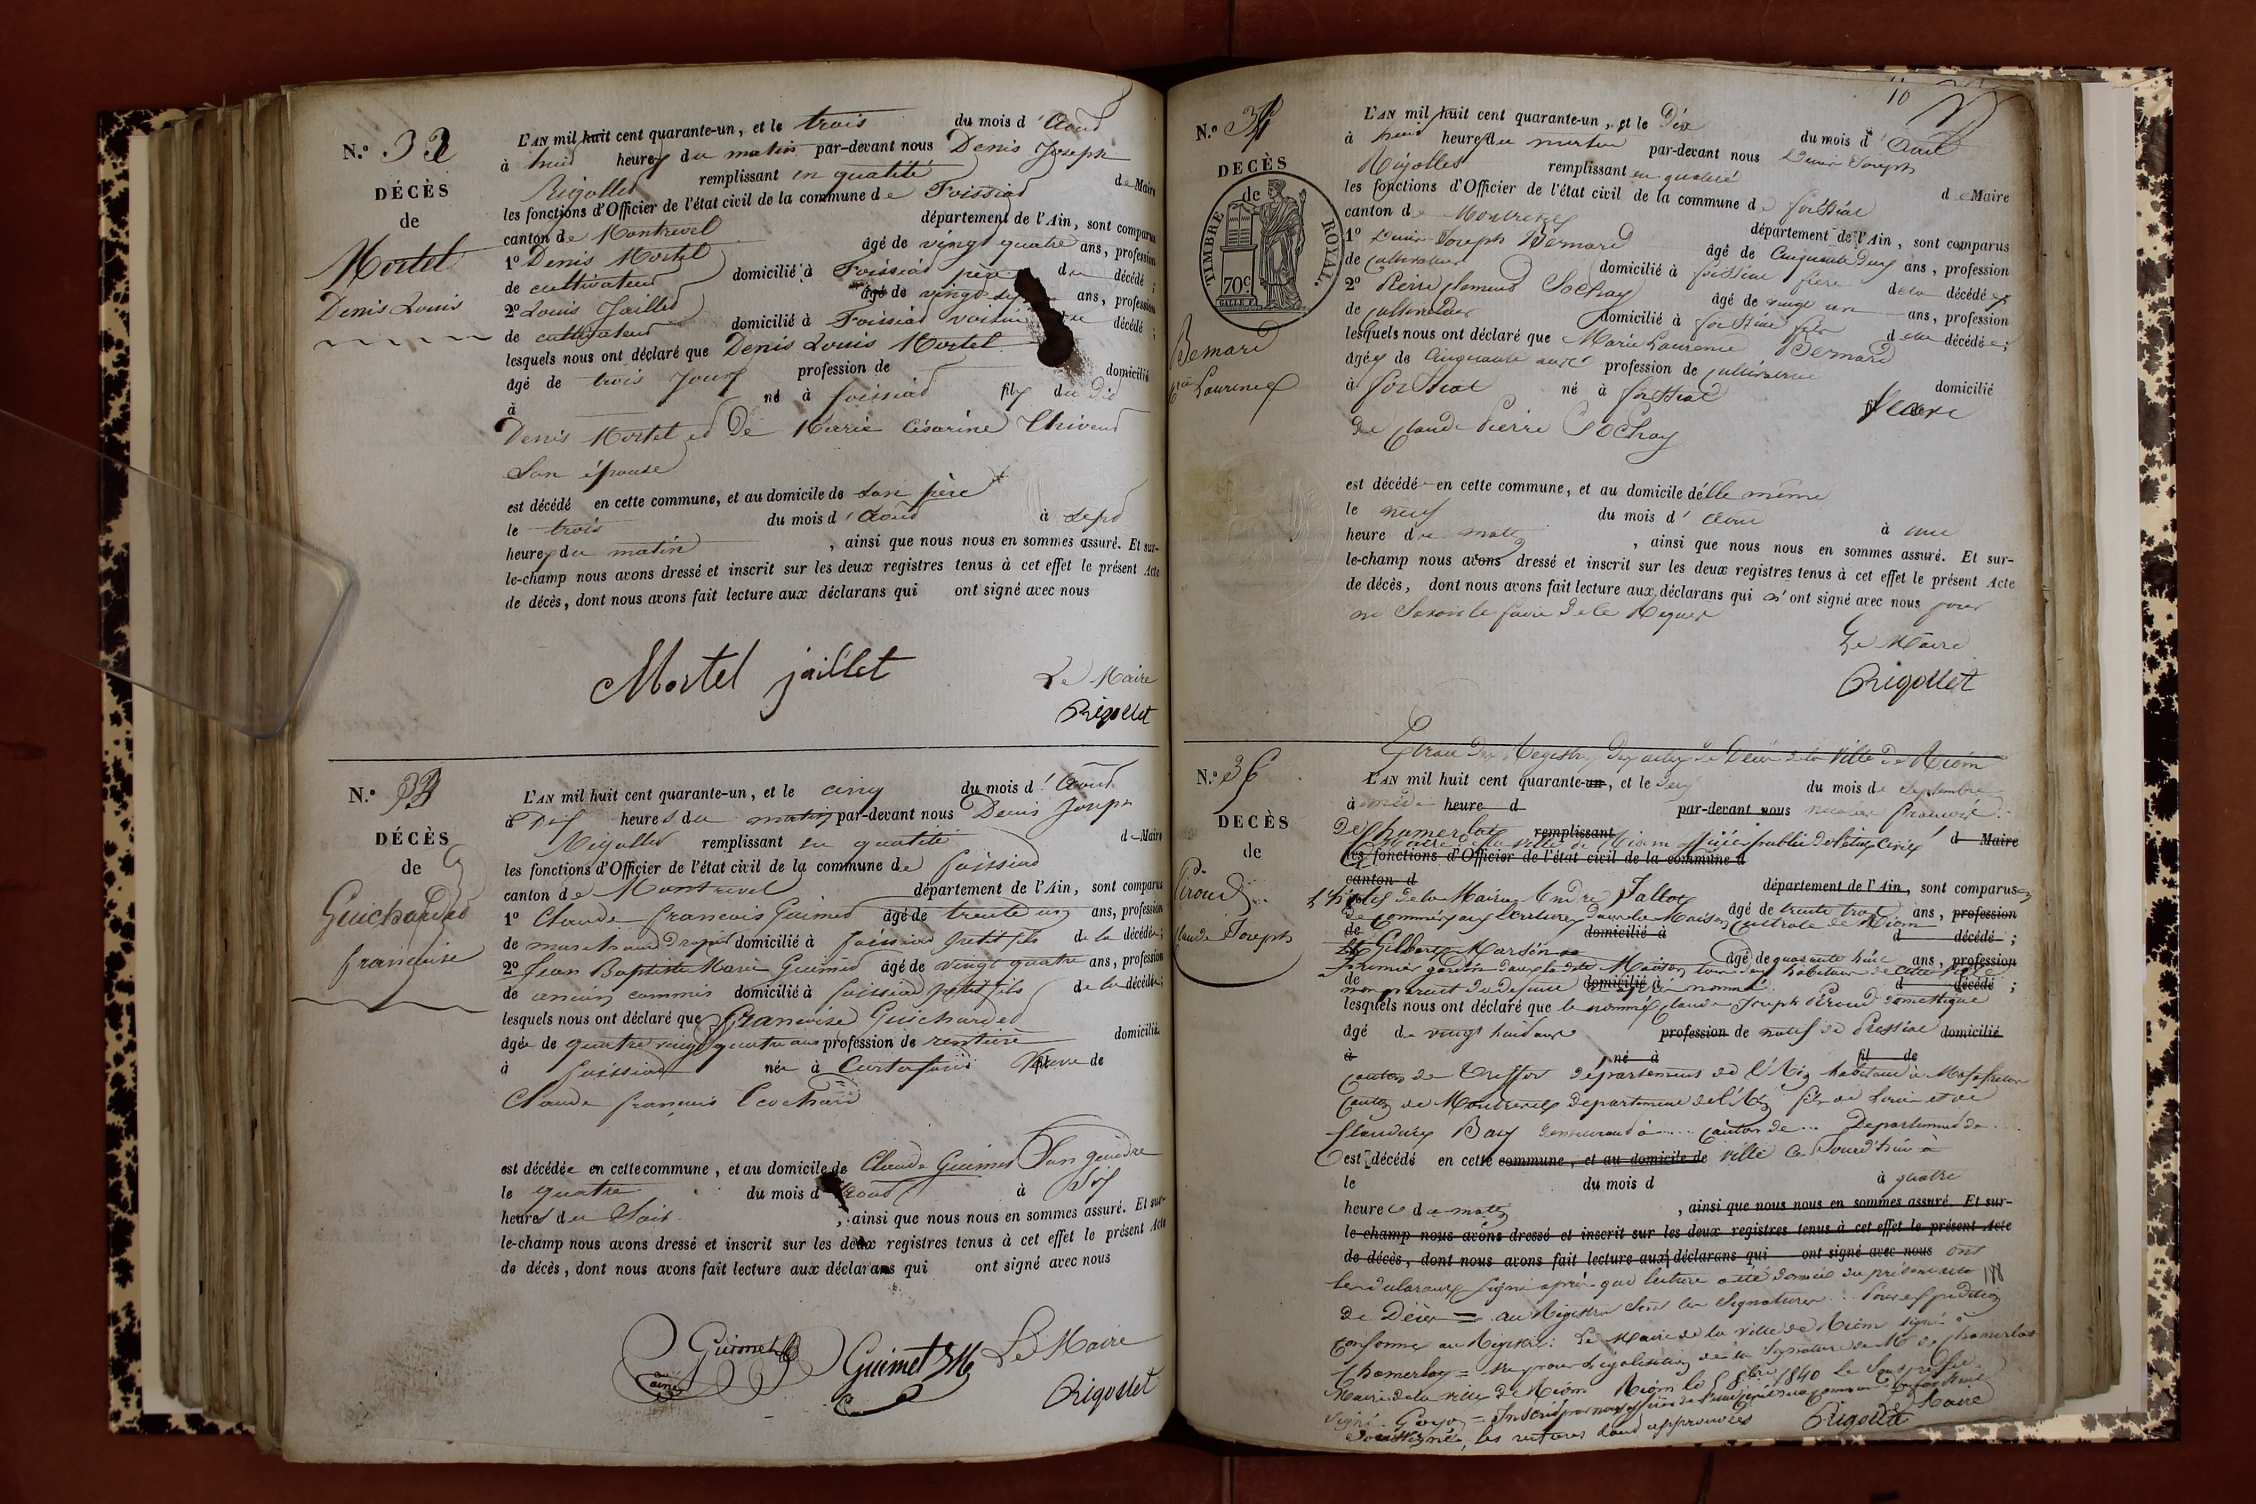 N.° 33
DÉCÈS
de
Mortel
Denis Louis
L'AN mil huit cent quarante-un, et le trois du mois d'Aout
à huit heures du matin par-devant nous Denis Joseph
Rigollet remplissant en qualité de Maire
les fonctions d'Officier de l'état civil de la commune de Foissiat
canton de Montrevel département de l'Ain, sont comparus
1° Denis Mortel âgé de vingt quatre ans, profession
de cultivateur domicilié à Foissiat père du décédé ;
2° Louis Jaillet âgé de vingt ans, profession
de cultivateur domicilié à Foissiat voisin du décédé ;
lesquels nous ont déclaré que Denis Louis Mortel
âgé de trois jours profession de domicilié
à né à foissiat fils du dit
Denis Mortel et de Marie Césarine Thivent
Son épouse
est décédé en cette commune, et au domicile de son père
le trois du mois d'Aout à sept
heures du matin , ainsi que nous nous en sommes assuré. Et sur-
le-champ nous avons dressé et inscrit sur les deux registres tenus à cet effet le présent Acte
de décès, dont nous avons fait lecture aux déclarans qui ont signé avec nous
Mortel jaillet
Le Maire
Rigollet
N.°
DÉCÈS
de
Guichardet
françoise
L'AN mil huit cent quarante-un, et le cinq du mois d'Aout
à dix heures du matin par-devant nous Denis Joseph
Rigollet remplissant en qualité de Maire
les fonctions d'Officier de l'état civil de la commune de foissiat
canton de Montrevel département de l'Ain, sont comparus
1° Claude françois Guimet âgé de trente un ans, profession
de marchand drapier domicilié à foissiat petit fils de la décédée ;
2° Jean Baptiste Marie Guimet âgé de vingt quatre ans, profession
de ancien commis domicilié à foissiat petit fils de la décédée ;
lesquels nous ont déclaré que françoise Guichardet
âgée de quatre vingt quatre ans profession de rentière domiciliée
à foissiat née à Curtafond Veuve de
Claude françois Ecochard
est décédée en cette commune, et au domicile de Claude Guimet Son gendre
le quatre du mois d'Aout à dix
heures du Soir , ainsi que nous nous en sommes assuré. Et sur-
le-champ nous avons dressé et inscrit sur les deux registres tenus à cet effet le présent Acte
de décès, dont nous avons fait lecture aux déclarans qui ont signé avec nous
Guimet
ainé
Guimet JM
Le Maire
Rigollet
10
N.°
DECÈS
de
TIMBRE ROYAL.
70c
Bernard
Laurence
L'AN mil huit cent quarante-un, et le Dix du mois d'Aout
à huit heures du matin par-devant nous Denis Joseph
Rigollet remplissant en qualité de Maire
les fonctions d'Officier de l'état civil de la commune de foissiat
canton de Montrevel département de l'Ain, sont comparus
1° Denis Joseph Bernard âgé de Cinquante deux ans, profession
de cultivateur domicilié à foissiat frère de la décédée
2° Pierre Clement Sochay âgé de vingt un ans, profession
de cultivateur domicilié à foissiat fils de la décédée ;
lesquels nous ont déclaré que Marie Laurence Bernard
âgée de cinquante ans profession de cultivatrice domicilié
à foissiat né à foissiat Veuve
de Claude Pierre Sochay
est décédé en cette commune, et au domicile d'elle même
le neuf du mois d'Aout à une
heure du matin , ainsi que nous nous en sommes assuré. Et sur-
le-champ nous avons dressé et inscrit sur les deux registres tenus à cet effet le présent Acte
de décès, dont nous avons fait lecture aux déclarans qui n'ont signé avec nous pour
ne Savoir le faire de ce Requis
Le Maire
Rigollet
Extrait des Registres des actes de Décès de la ville de Riom
N.° 36
DECÈS
de
Péroud
Claude Joseph
L'AN mil huit cent quarante-un, et le deux du mois de Septembre
à midi heure d par-devant nous
de Chamerlat remplissant
Maire de la ville de Riom officier public de l'état Civil d Maire
les fonctions d'Officier de l'état civil de la commune d
canton d
l'hôtel de la Mairie André Fallot département de l'Ain, sont comparus
âgé de trente trois ans, profession
de commis aux Ecritures dans la Maison Centrale de Riom
de domicilié à d décédé ;
et Gilbert Marsin âgé de quarante huit ans, profession
premier gardien dans la dite Maison tous deux habitant de cette ville
de domicilié à d décédé ;
non parent du defunt
lesquels nous ont déclaré que le nommé Claude Joseph Péroud domestique
âgé de vingt huit ans profession de natif de Pressiat domicilié
à né à fil de
canton de Treffort departement de l'Ain habitant à
canton de Montrevel departement de l'Ain fils de Louis et de
Claudine Bay demeurant à ... canton de ... Departement de ...
est décédé en cette commune, et au domicile de ville ce jourd'hui à
le du mois d à quatre
heures du matin , ainsi que nous nous en sommes assuré. Et sur-
le-champ nous avons dressé et inscrit sur les deux registres tenus à cet effet le présent Acte
de décès, dont nous avons fait lecture aux déclarans qui ont signé avec nous ont
les declarans signé après que lecture a été donnée du présent acte
de Décès = au Registre sont les signatures ... Pour expedition
conforme au Registre : Le Maire de la ville de Riom signé : de
Chamerlat = Vu pour Légalisation de la Signature de Mr de Chamerlat
Maire de la ville de Riom Riom le 5 8bre 1840 Le Sous préfet
Signé : Goyon = Inscrit par nous officier de l'état civil de la commune de foissiat
soussigné, les ratures dont approuvées
Rigollet Maire